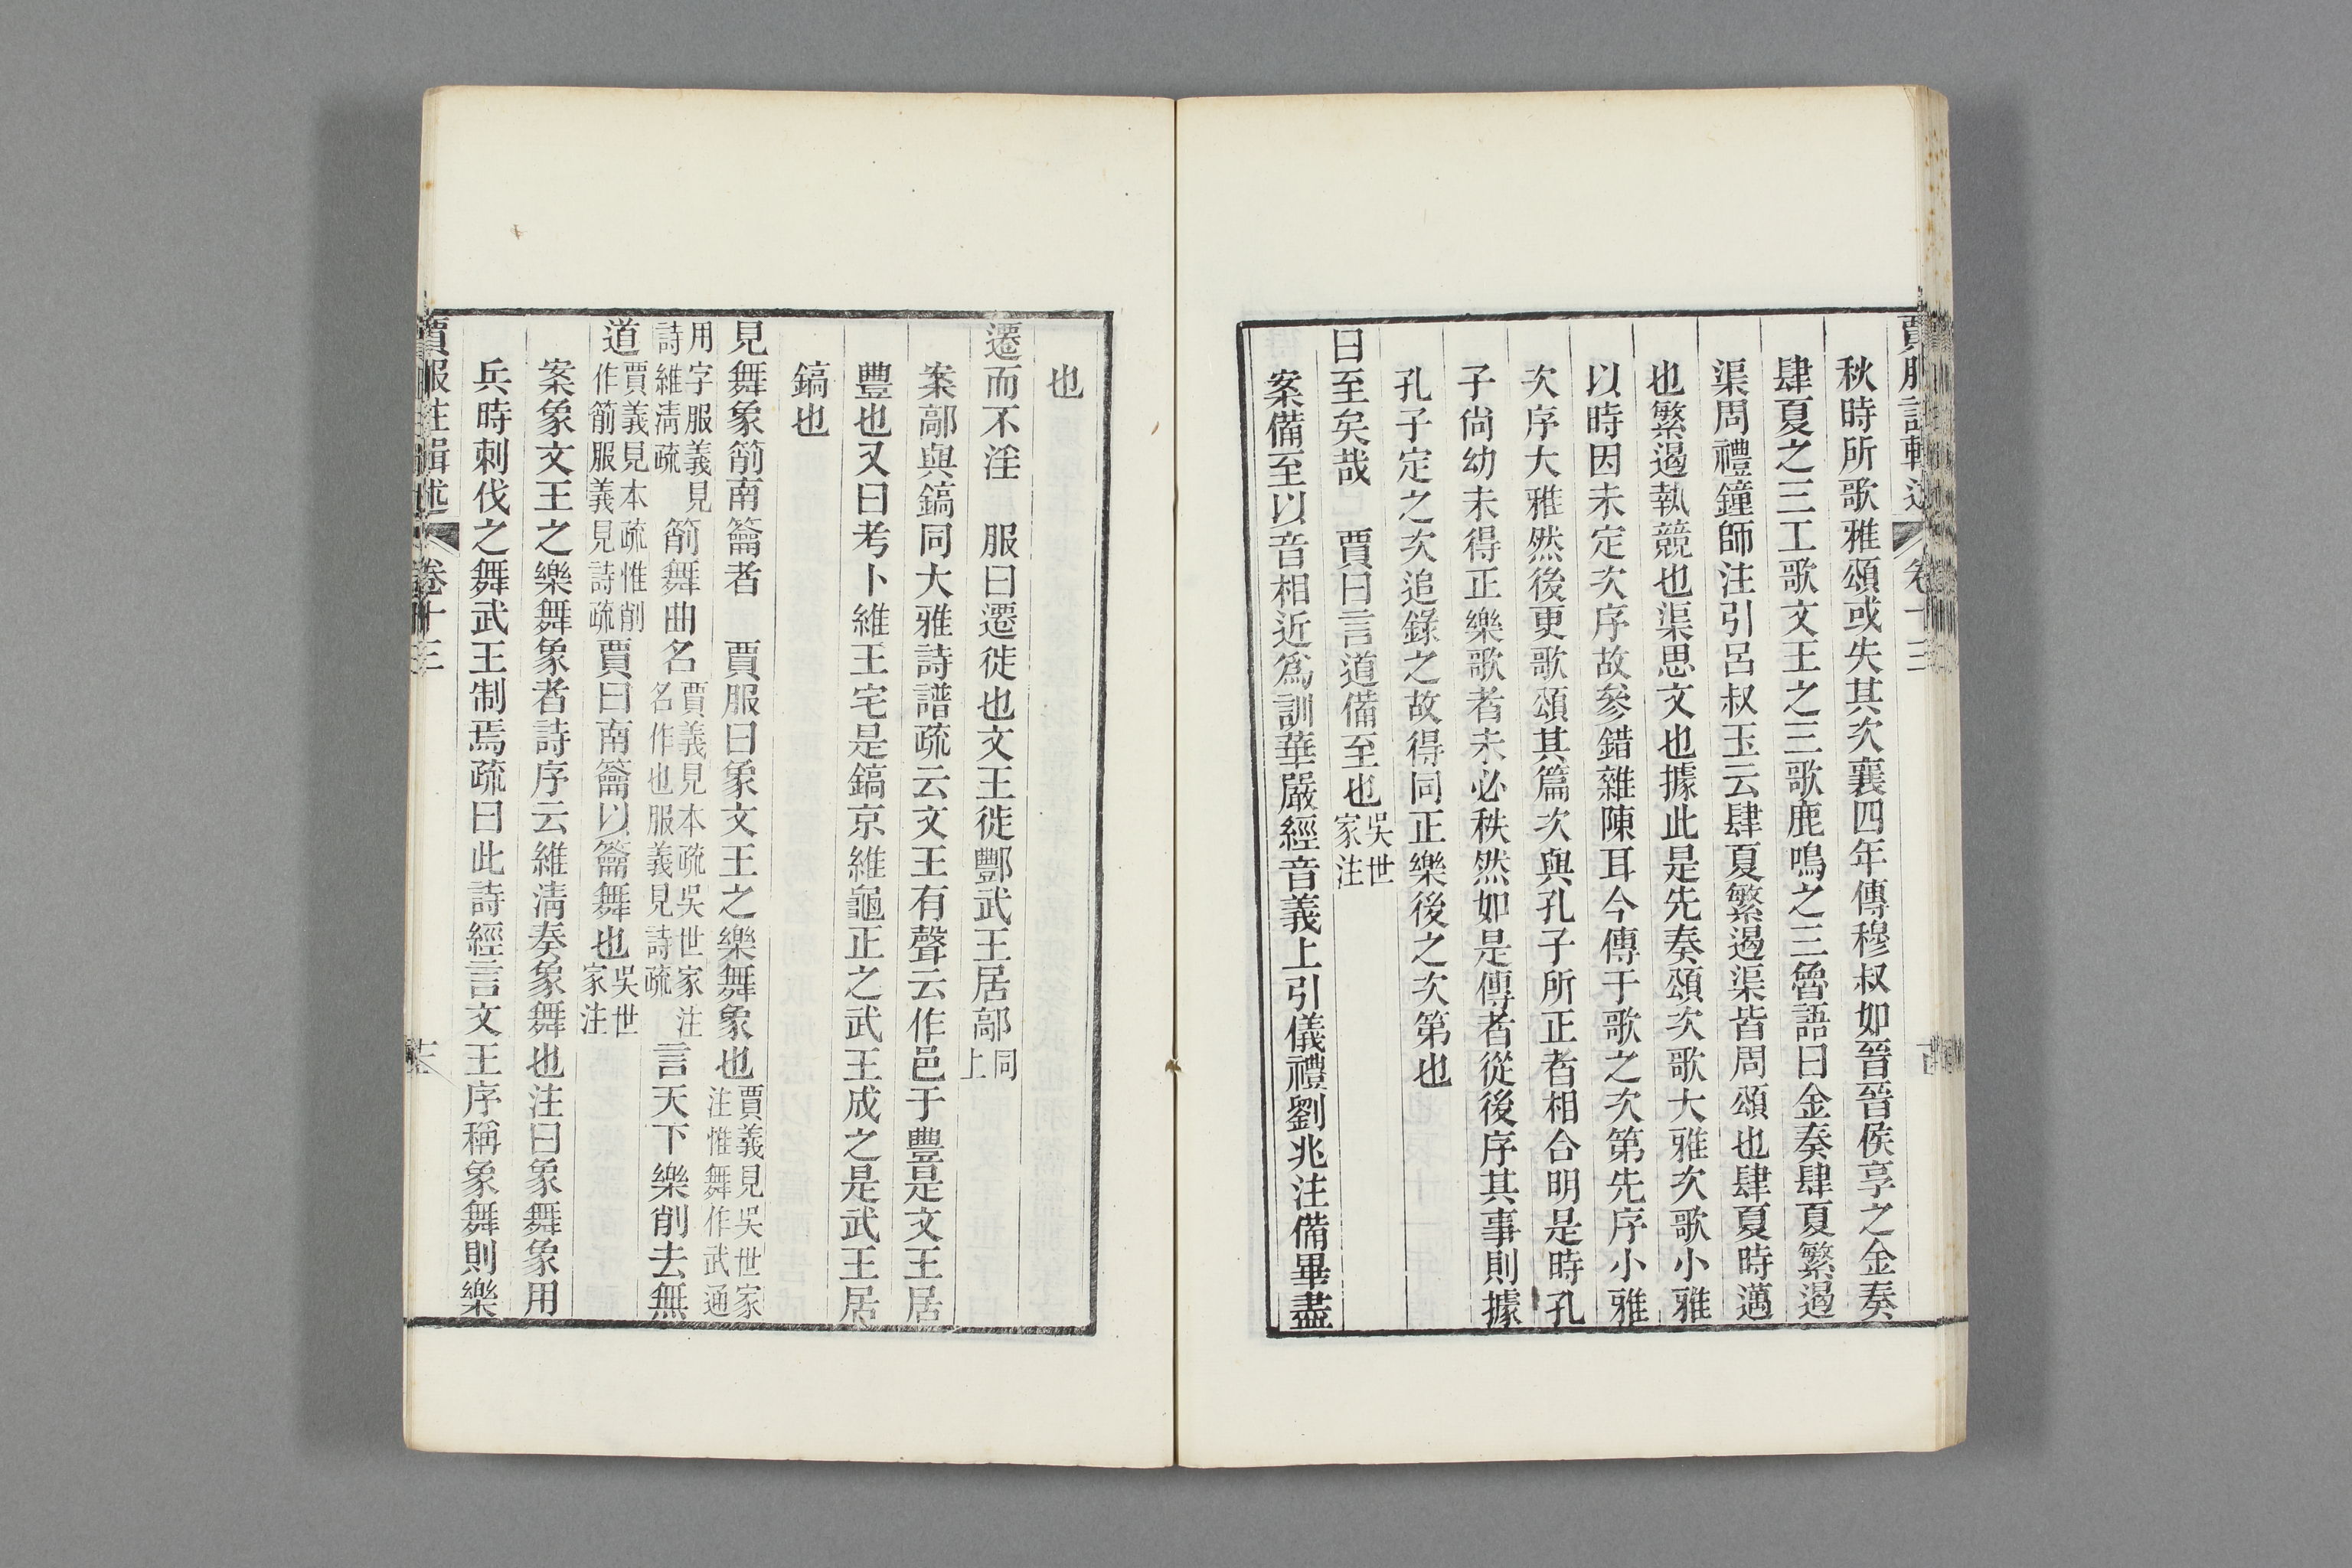 秋時所歌雅頌或失其次襄四年傳穆叔如晉晉侯享之金奏
肆夏之三工歌文王之三歌鹿鳴之三魯語曰金奏肆夏繁遏
渠周禮鐘師注引呂叔玉云肆夏繁遏渠皆周頌也肆夏時邁
也繁遏執競也渠思文也據此是先奏頌次歌大雅次歌小雅
以時因未定次序故參錯雜陳耳今傳于歌之次第先序小雅
次序大雅然後更歌頌其篇次與孔子所正者相合明是時孔
子尙幼未得正樂歌者未必秩然如是傳者從後序其事則據
孔子定之次追錄之故得同正樂後之次第也
曰至矣哉　賈曰言道備至也吳世家注
案備至以音相近爲訓華嚴經音義上引儀禮劉兆注備畢盡
也
遷而不淫　服曰遷徙也文王徙酆武王居鄗同上
案鄗與鎬同大雅詩譜疏云文王有聲云作邑于豐是文王居
豐也又曰考卜維王宅是鎬京維龜正之武王成之是武王居
鎬也
見舞象箾南籥者　賈服曰象文王之樂舞象也賈義見吳世家注惟舞作武通
用字服義見詩維淸疏箾舞曲名賈義見本疏吳世家注名作也服義見詩疏言天下樂削去無
道賈義見本疏惟削作箾服義見詩疏賈曰南籥以籥舞也吳世家注
案象文王之樂舞象者詩序云維淸奏象舞也注曰象舞象用
兵時刺伐之舞武王制焉疏曰此詩經言文王序稱象舞則樂
賈服注輯述　卷十三